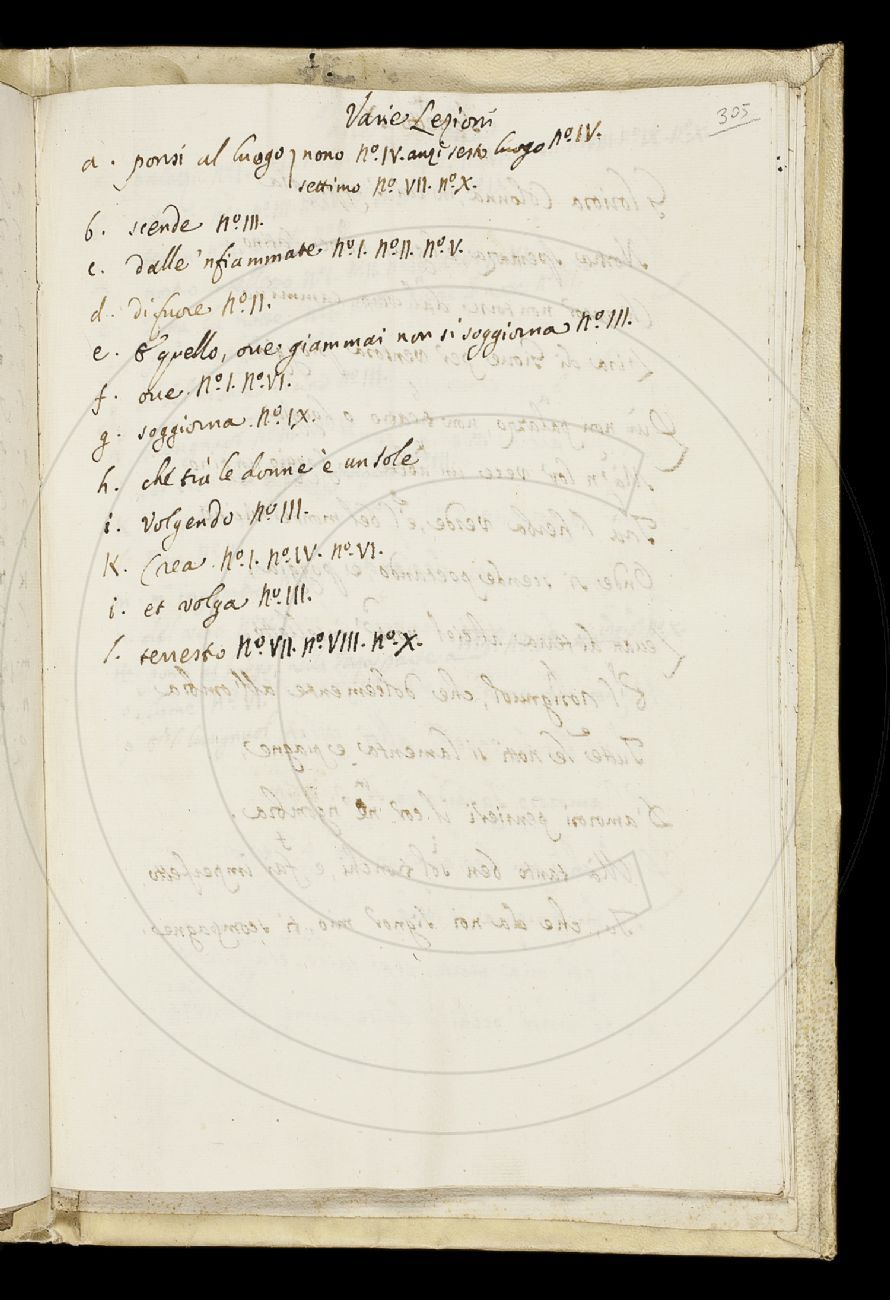 Varie Lezioni
305
a. ponsi al luogo nono no. IV. anzi sesto luogo no. IV.
settimo no. VII. no. X.
b. scende no. III.
c. dalle 'nfiammate no. I. no. II. no. V.
d. di fuore no. II.
e. E quello, ove giammai non si soggiorna no. III.
f. ove no. I. no. VI.
g. soggiorna no. IX.
h. che trà le donne è un sole
i. volgendo no. III.
K. Crea no. I. no. IV. no. VI.
i. et volga no. III.
l. terresto no. VII. no. VIII. no. X.